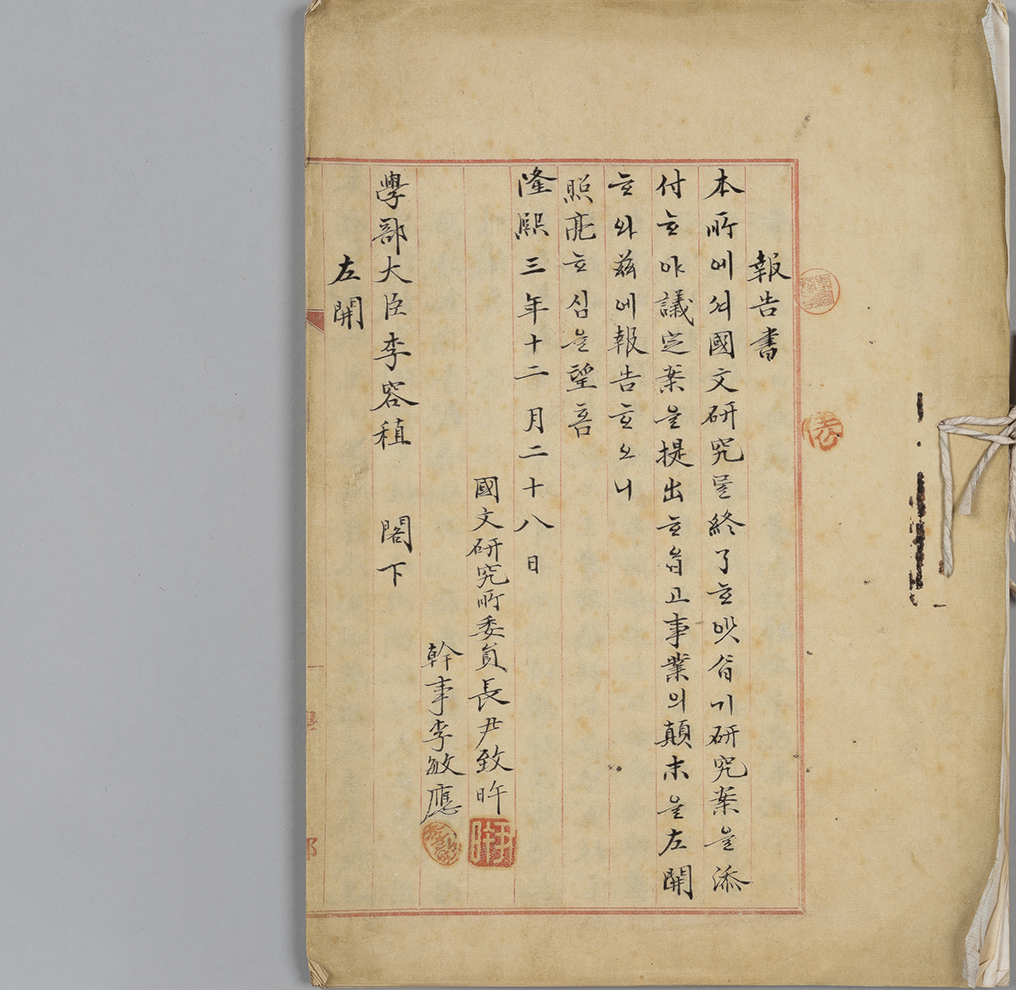 報告書
本所에셔國文研究를終了ᄒᆞ얏ᄉᆞᆸ기研究案을添
付ᄒᆞ야議定案을提出ᄒᆞᄋᆞᆸ고事業의顛末을左開
ᄒᆞ와玆에報告ᄒᆞ오니
照亮ᄒᆞ심을望홈
隆熙三年十二月二十八日
國文研究所委員長尹致旿
幹事李敏應
學部大臣李容稙 閣下
左開